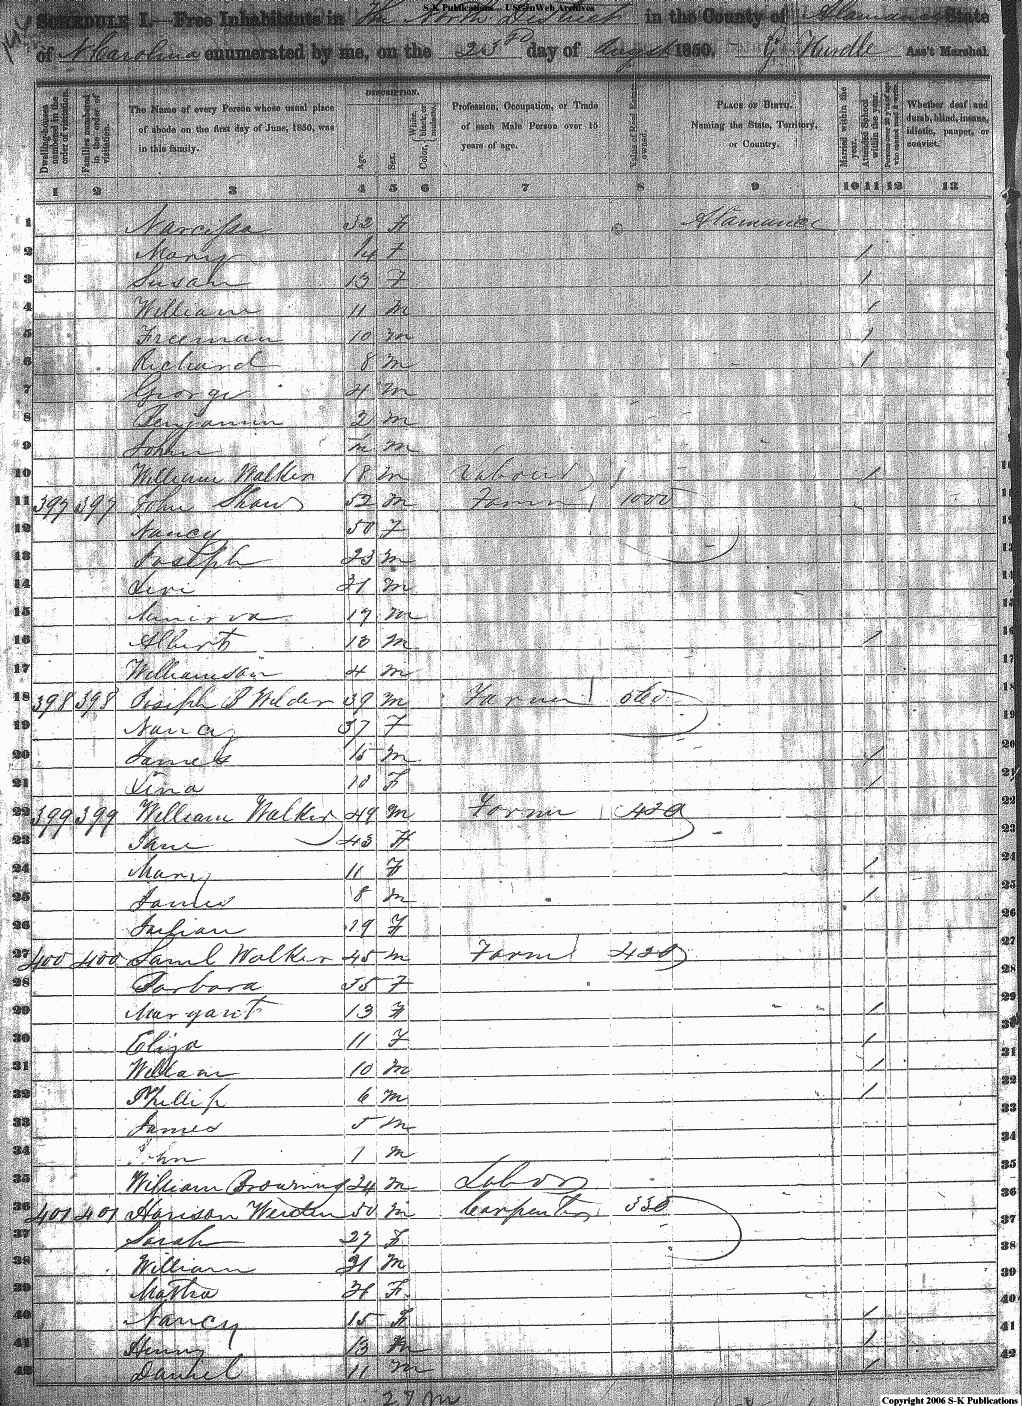 S-K Publications - USGenWeb Archives
SCHEDULE I.—Free Inhabitants in The North District in the County of Alamance State
of N Carolina enumerated by me, on the 23rd day of August 1850. G Hurdle Ass't Marshal.
Dwelling-houses numbered in the order of visitation.
Families numbered in the order of visitation.
The Name of every Person whose usual place of abode on the first day of June, 1850, was in this family.
DESCRIPTION.
Age.
Sex.
Color, White, black, or mulatto.
Profession, Occupation, or Trade of each Male Person over 15 years of age.
Value of Real Estate owned.
PLACE OF BIRTH. Naming the State, Territory, or Country.
Married within the year.
Attended School within the year.
Whether deaf and dumb, blind, insane, idiotic, pauper, or convict.
1 2 3 4 5 6 7 8 9 10 11 12 13
1 Narcissa 32 F Alamance
2 Mary 14 F / 2
3 Susan 13 F / 3
4 William 11 M / 4
5 Freeman 10 M / 5
6 Richard 8 M / 6
7 George 4 M 7
8 Benjamin 2 M 8
9 John M 9
10 William Walker 18 M Labour / 10
11 397 397 John Shaw 52 M Farmer 1000 11
12 Nancy 50 F 12
13 Joseph 23 M 13
14 Levi 21 M 14
15 Minerva 17 M 15
16 Albert 10 M / 16
17 Williamson 4 M 17
18 398 398 Joseph P Wilder 39 M Farmer 18
19 Nancy 37 F 19
20 James 15 M / 20
21 Lina 10 F / 21
22 399 399 William Walker 49 M Farmer 420 22
23 Jane 43 F 23
24 Mary 11 F / 24
25 James 8 M / 25
26 Julian 19 F 26
27 400 400 Saml Walker 45 M Farmer 420 27
28 Barbara 35 F 28
29 Margaret 13 F / 29
30 Eliza 11 F / 30
31 William 10 M / 31
32 Phillip 6 M / 32
33 James 5 M 33
34 John 1 M 34
35 William Browning 24 M Labor 35
36 401 401 Harison 50 M Carpenter 330 36
37 Sarah 27 F 37
38 William 21 M 38
39 Martha F 39
40 Nancy 15 F / 40
41 Henry 13 M / 41
42 Daniel 11 M / 42
27 M
Copyright 2006 S-K Publications